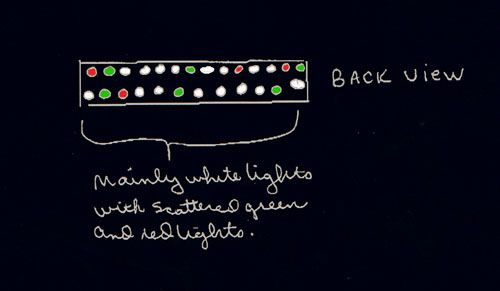 BACK VIEW
Mainly white lights
with scattered green
and red lights.